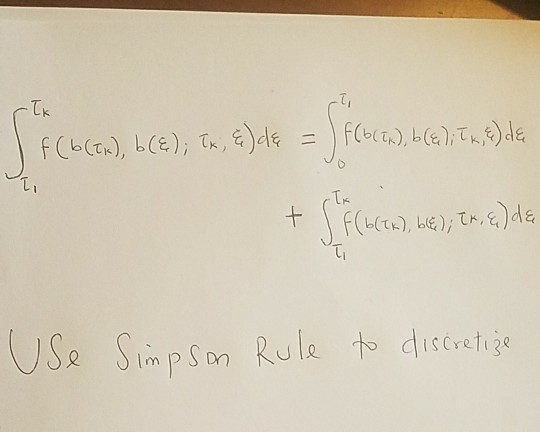 ∫_{τ₁}^{τₖ} f(b(τₖ), b(ξ); τₖ, ξ)dξ = ∫_0^{τ₁} f(b(τₖ), b(ξ); τₖ, ξ)dξ
+ ∫_{τ₁}^{τₖ} f(b(τₖ), b(ξ); τₖ, ξ)dξ
Use Simpson Rule to discretize